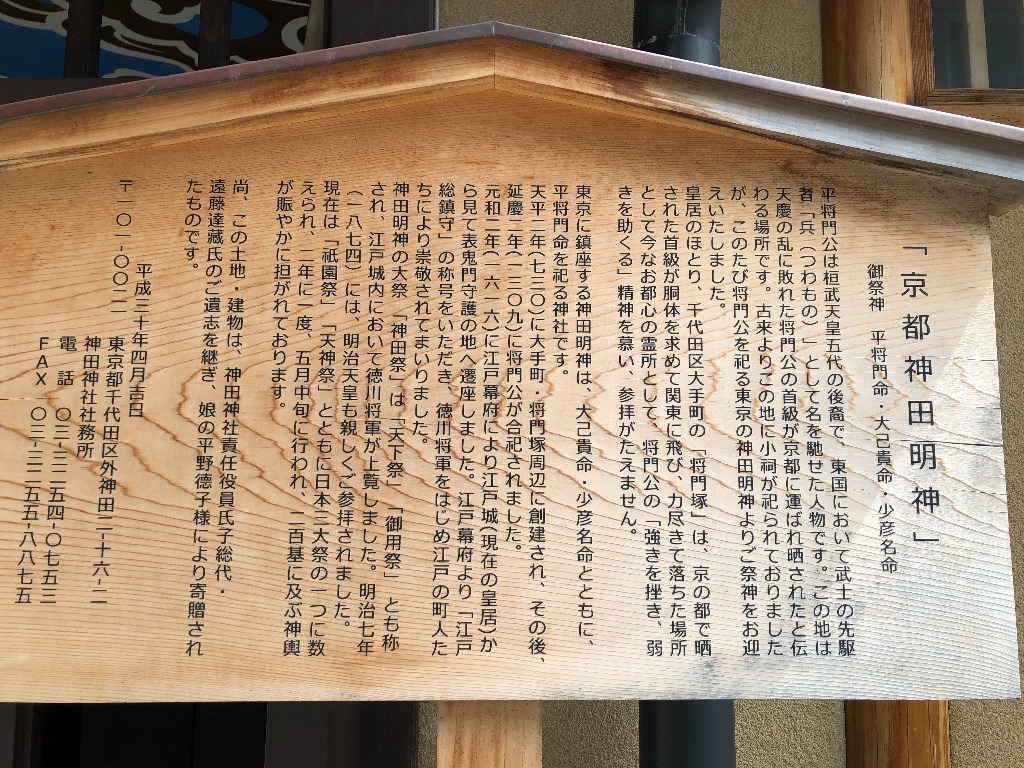 「京都神田明神」
御祭神　平将門命・大己貴命・少彦名命
平将門公は桓武天皇五代の後裔で、東国において武士の先駆
者「兵（つわもの）」として名を馳せた人物です。この地は
天慶の乱に敗れた将門公の首級が京都に運ばれ晒されたと伝
わる場所です。古来よりこの地に小祠が祀られておりました
が、このたび将門公を祀る東京の神田明神よりご祭神をお迎
えいたしました。
皇居のほとり、千代田区大手町の「将門塚」は、京の都で晒
された首級が胴体を求めて関東に飛び、力尽きて落ちた場所
として今なお都心の霊所として、将門公の「強きを挫き、弱
きを助くる」精神を慕い、参拝がたえません。
東京に鎮座する神田明神は、大己貴命・少彦名命とともに、
平将門命を祀る神社です。
天平二年（七三〇）に大手町・将門塚周辺に創建され、その後、
延慶二年（一三〇九）に将門公が合祀されました。
元和二年（一六一六）に江戸幕府により江戸城（現在の皇居）か
ら見て表鬼門守護の地へ遷座しました。江戸幕府より「江戸
総鎮守」の称号をいただき、徳川将軍をはじめ江戸の町人た
ちにより崇敬されてまいりました。
神田明神の大祭「神田祭」は「天下祭」「御用祭」とも称
され、江戸城内において徳川将軍が上覧しました。明治七年
（一八七四）には、明治天皇も親しくご参拝されました。
現在は「祇園祭」「天神祭」とともに日本三大祭の一つに数
えられ、二年に一度、五月中旬に行われ、二百基に及ぶ神輿
が賑やかに担がれております。
尚、この土地・建物は、神田神社責任役員氏子総代・
遠藤達藏氏のご遺志を継ぎ、娘の平野徳子様により寄贈され
たものです。
平成三十年四月吉日
〒一〇一-〇〇二一　東京都千代田区外神田二-十六-二
神田神社社務所
電話　〇三-三二五四-〇七五三
ＦＡＸ　〇三-三二五五-八八七五